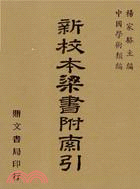 楊家駱主編
中國學術類編
新校本梁書附索引
鼎文書局印行